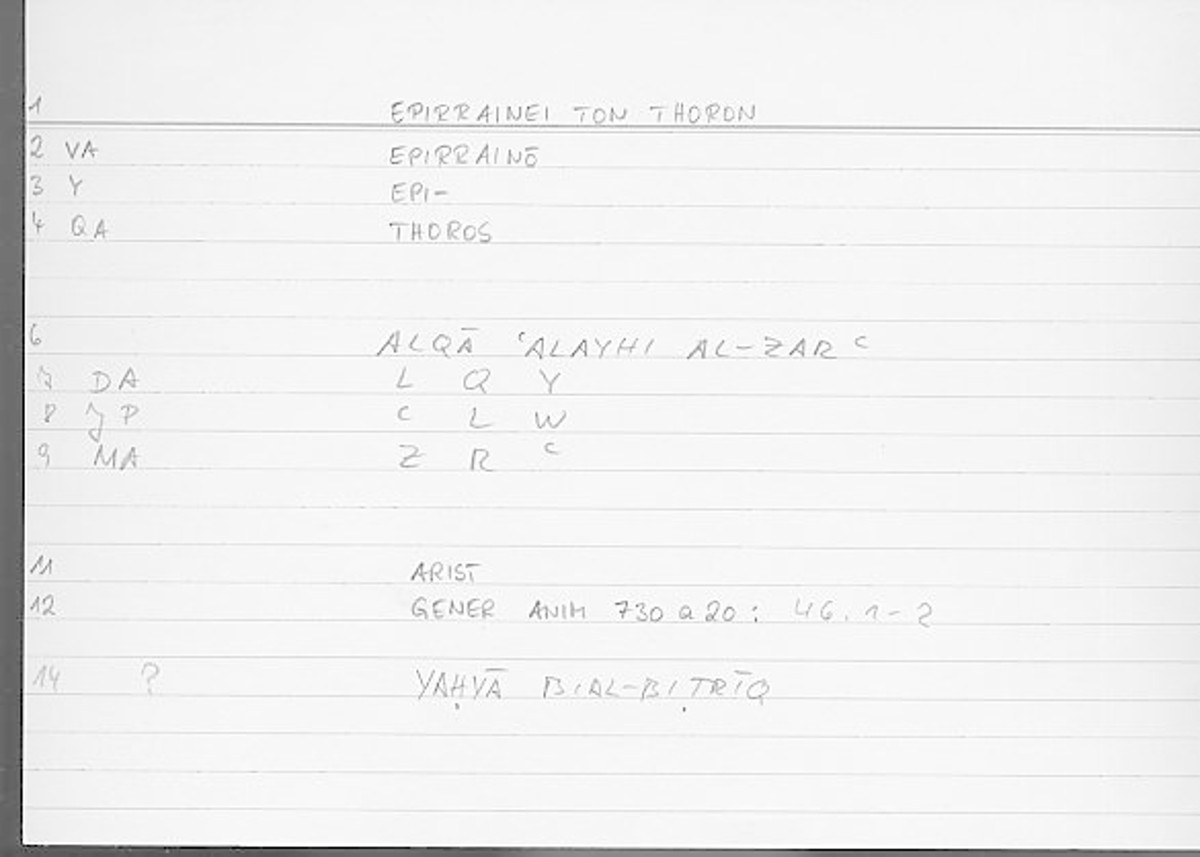 1 EPIRRAINEI TON THORON
2 VA EPIRRAINŌ
3 Y EPI-
4 QA THOROS
6 ALQĀ ʿALAYHI AL-ZARʿ
7 DA L Q Y
8 JP ʿ L W
9 MA Z R ʿ
11 ARIST
12 GENER ANIM 730 a 20 : 46. 1-2
14 ? YAḤYĀ B IAL-BIṬRĪQ